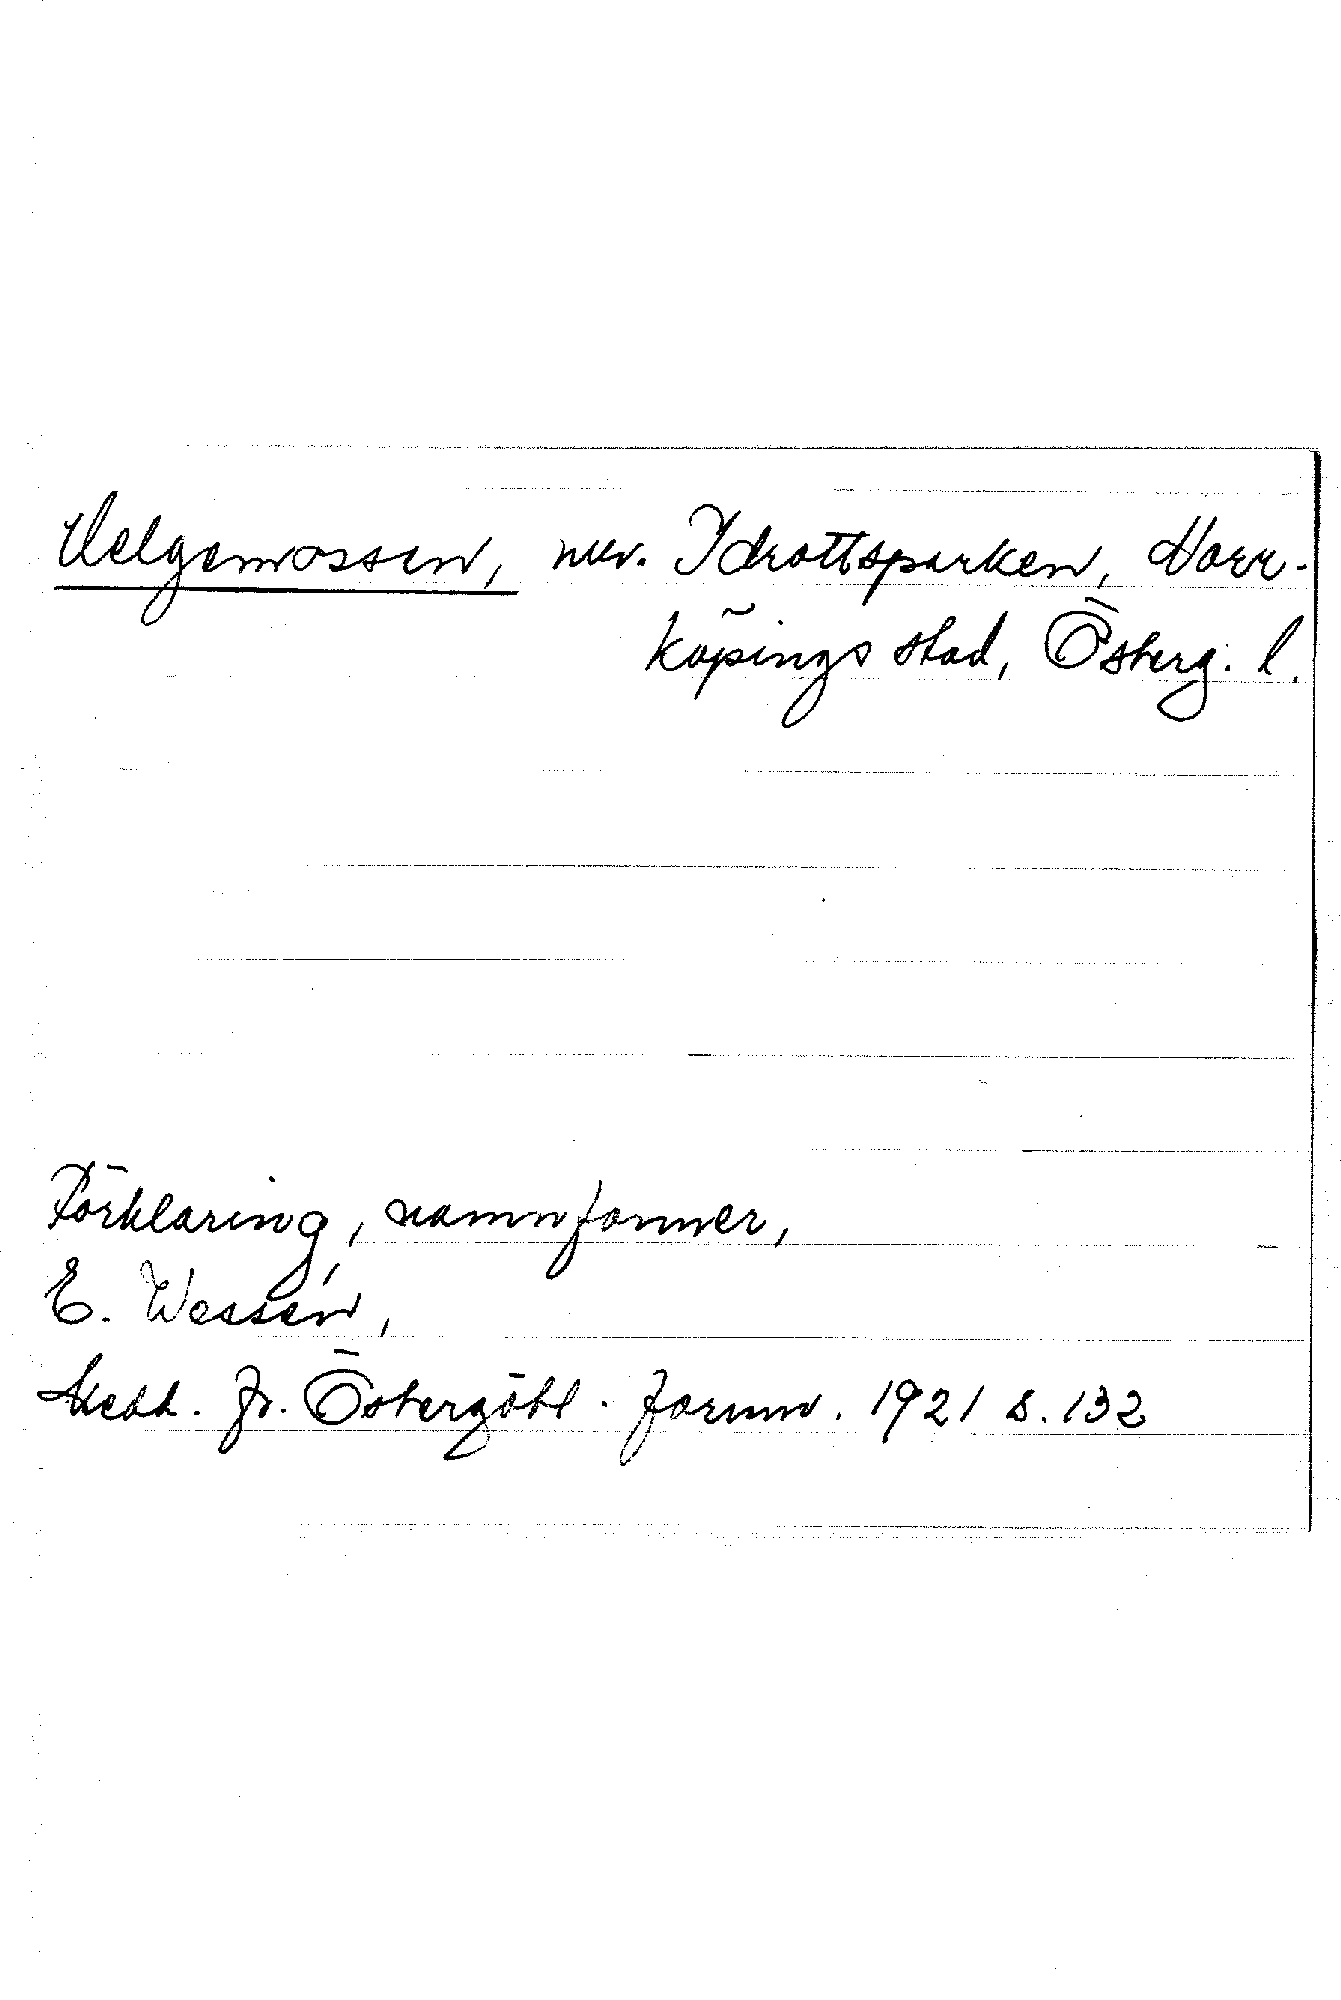 Velgemossen, nuv. Idrottsparken, Norr-
köpings stad, Österg. l.
Förklaring, namnformer,
E. Wessén,
Medd. fr. Östergötl. fornm. 1921 s. 132